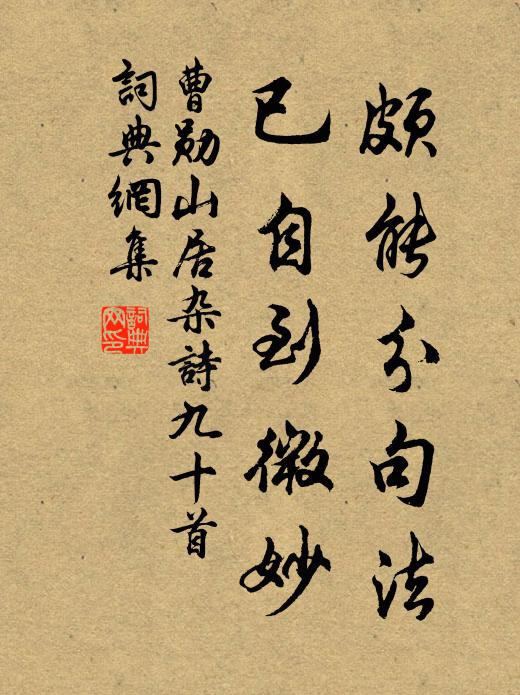 頗能分句法
已自到微妙
曹勛山居杂詩九十首
詞典網集
詞典网印